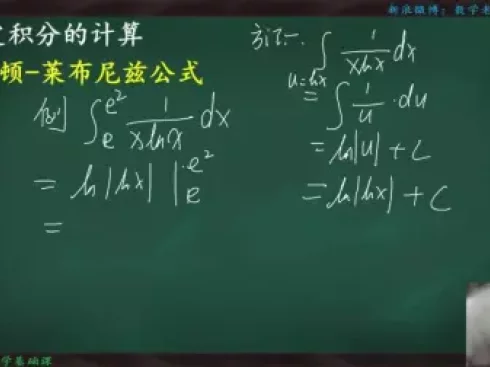 积分的计算
顿-莱布尼兹公式
例 ∫_e^{e^2} 1/(x ln x) dx
= ln|ln x| |_e^{e^2}
=
∫ 1/(x ln x) dx
u=ln x
= ∫ 1/u · du
= ln|u| + C
= ln|ln x| + C
新浪微博：数学老
学基础课